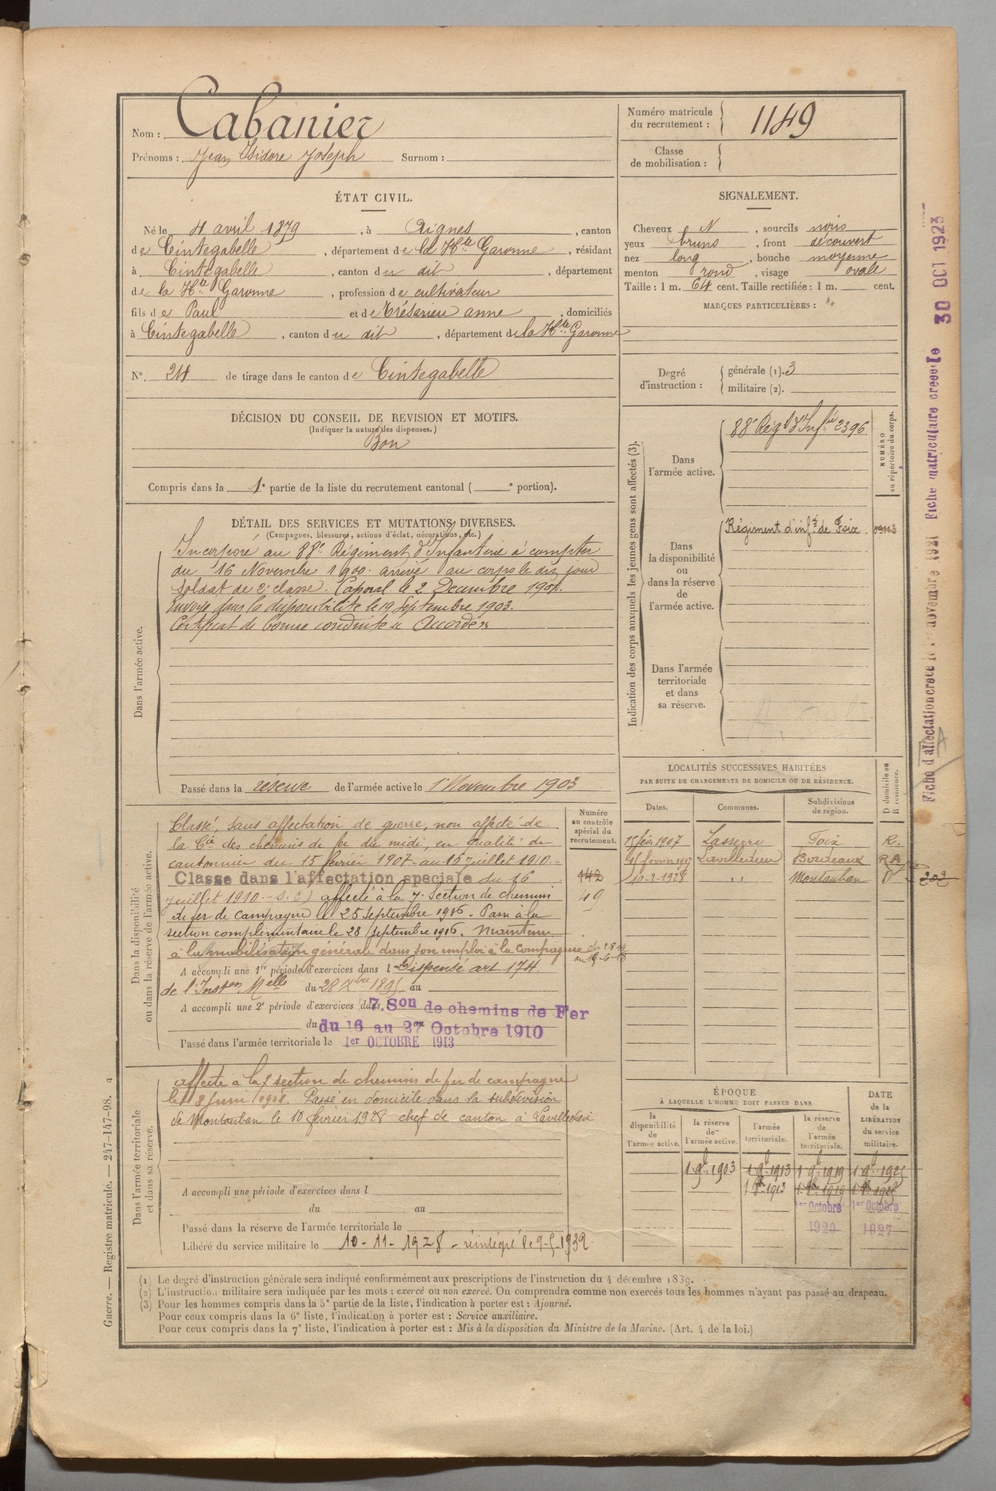 Nom : Cabanier
Prénoms : Jean Isidore Joseph Surnom :
Numéro matricule du recrutement : 1149
Classe de mobilisation :
ÉTAT CIVIL.
Né le 4 avril 1879, à Aignes, canton
de Cintegabelle, département de la Hte Garonne, résidant
à Cintegabelle, canton du dit, département
de la Hte Garonne, profession de cultivateur
fils de Paul et de Trésarieu anne, domiciliés
à Cintegabelle, canton du dit, département de la Hte Garonne
N° 24 de tirage dans le canton de Cintegabelle
SIGNALEMENT.
Cheveux N, sourcils noirs
yeux bruns, front découvert
nez long, bouche moyenne
menton rond, visage ovale
Taille : 1 m. 64 cent. Taille rectifiée : 1 m. cent.
MARQUES PARTICULIÈRES :
Degré d'instruction : générale (1). 3
militaire (2).
DÉCISION DU CONSEIL DE REVISION ET MOTIFS.
(Indiquer la nature des dispenses.)
Bon
Compris dans la 1e partie de la liste du recrutement cantonal ( e portion).
DÉTAIL DES SERVICES ET MUTATIONS DIVERSES.
(Campagnes, blessures, actions d'éclat, décorations, etc.)
Dans l'armée active.
Incorporé au 88e Régiment d'Infanterie à compter
du 16 Novembre 1900. arrivé au corps le dit jour
soldat de 2e classe. Caporal le 2 Decembre 1901.
Envoyé dans la disponibilité le 19 Septembre 1903.
Certificat de bonne conduite accordé
Passé dans la réserve de l'armée active le 1er Novembre 1903
Indication des corps auxquels les jeunes gens sont affectés (3).
NUMÉRO au répertoire du corps.
Dans l'armée active.
88e Régt d'Infie 2396
Dans la disponibilité ou dans la réserve de l'armée active.
Régiment d'infie de Foix.
Dans l'armée territoriale et dans sa réserve.
Dans la disponibilité ou dans la réserve de l'armée active.
Numéro au contrôle spécial du recrutement.
Classé, sans affectation de guerre, non affecté de
la Cie des chemins de fer du midi, en qualité de
cantonnier du 15 février 1907 au 16 juillet 1910.
Classe dans l'affectation speciale du 16
juillet 1910 affecté à la 7e Section de chemins
de fer de campagne le 25 Septembre 1916. Passé à la
section complémentaire le 28 septembre 1916. Maintenu
à la mobilisation générale dans son emploi à la compagnie
142
49
A accompli une 1re période d'exercices dans l Dispensé art 174
de l'Inston Melle du 28 Xbre 1895 au
A accompli une 2e période d'exercices dans 7e Son de chemins de Fer
du 16 au 27 Octobre 1910
Passé dans l'armée territoriale le 1er OCTOBRE 1913
Dans l'armée territoriale et dans sa réserve.
affecté à la 7e section de chemins de fer de campagne
Passé en domicile dans la subdivision
de Montauban le 10 février 1928 chef de canton à Lavilledieu
A accompli une période d'exercices dans l
du au
Passé dans la réserve de l'armée territoriale le
Libéré du service militaire le 10-11-1928
LOCALITÉS SUCCESSIVES HABITÉES
PAR SUITE DE CHANGEMENTS DE DOMICILE OU DE RÉSIDENCE.
Dates. Communes. Subdivisions de région. D domicile ou R résidence.
15 fév. 1907 Lasserre Foix R.
Lavilledieu Bordeaux
10-2-1928 " Montauban D
202
ÉPOQUE
À LAQUELLE L'HOMME DOIT PASSER DANS
la disponibilité de l'armée active. la réserve de l'armée active. l'armée territoriale. la réserve de l'armée territoriale.
DATE de la LIBÉRATION du service militaire.
1 9b 1903 1 9b 1913 1 9b 1919 1 9b 1925
1er Octobre 1920
1er Octobre 1927
(1) Le degré d'instruction générale sera indiqué conformément aux prescriptions de l'instruction du 4 décembre 1889.
(2) L'instruction militaire sera indiquée par les mots : exercé ou non exercé. On comprendra comme non exercés tous les hommes n'ayant pas passé au drapeau.
(3) Pour les hommes compris dans la 5e partie de la liste, l'indication à porter est : Ajourné.
Pour ceux compris dans la 6e liste, l'indication à porter est : Service auxiliaire.
Pour ceux compris dans la 7e liste, l'indication à porter est : Mis à la disposition du Ministre de la Marine. (Art. 4 de la loi.)
Guerre. — Registre matricule. — 247-147-98.
Fiche d'affectation créée le novembre 1921 Fiche matriculaire créée le 30 OCT 1923